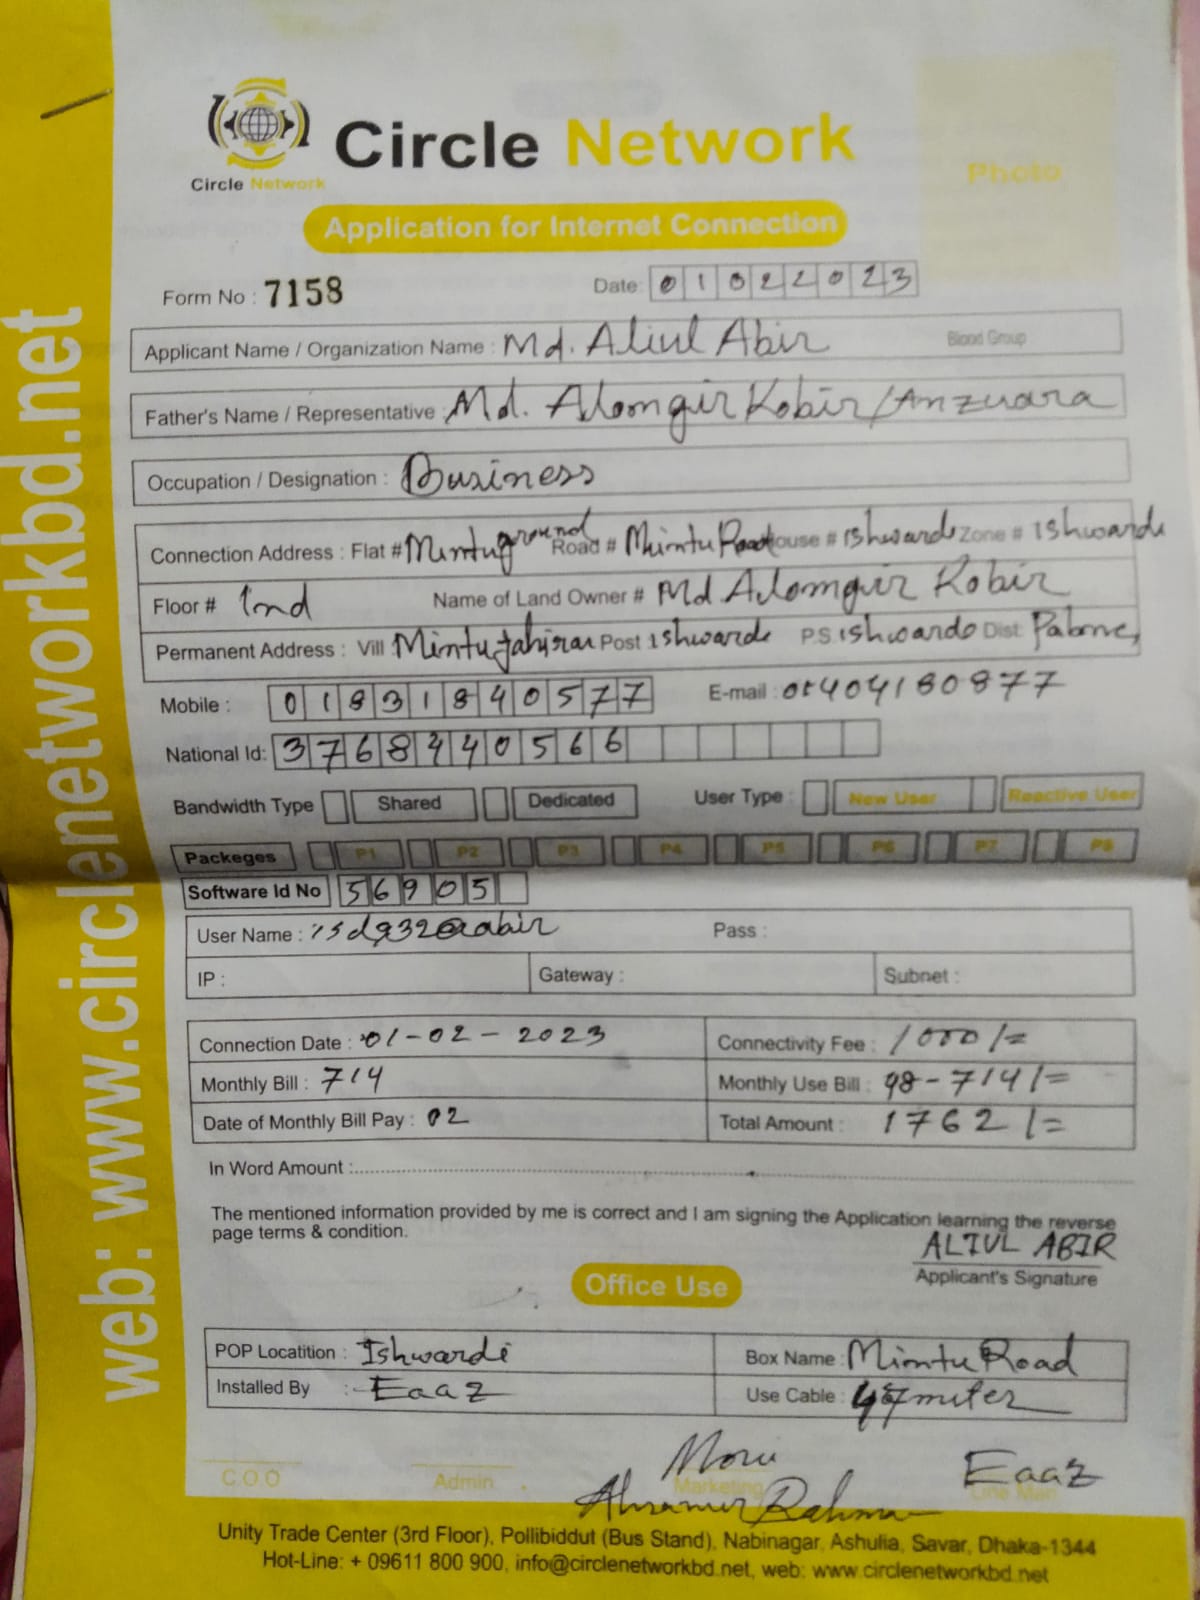 Circle Network
Circle Network
Photo
Application for Internet Connection
Form No : 7158
Date: 01022023
Applicant Name / Organization Name : Md. Aliul Abir
Blood Group
Father's Name / Representative : Md. Alomgir Kobir/Anzuara
Occupation / Designation : Business
Connection Address : Flat # Mintu ground Road # Mintu Road House # Ishwardi Zone # Ishwardi
Floor # 1nd Name of Land Owner # Md Alomgir Kobir
Permanent Address : Vill Mintu Post Ishwarde P.S. Ishwardo Dist.
Mobile : 01831840577 E-mail :
National Id: 3768440566
Bandwidth Type Shared Dedicated User Type : New User Reactive User
Packeges P1 P2 P3 P4 P5 P6 P7 P8
Software Id No 56905
User Name : Pass :
IP : Gateway : Subnet :
Connection Date : 01-02-2023 Connectivity Fee : 1000/=
Monthly Bill : 714 Monthly Use Bill : 48-714/=
Date of Monthly Bill Pay : 02 Total Amount : 1762/=
In Word Amount :
The mentioned information provided by me is correct and I am signing the Application learning the reverse
page terms & condition.
ALIUL ABIR
Applicant's Signature
Office Use
POP Locatition : Ishwardi Box Name : Mimtu Road
Installed By : Eaaz Use Cable : meter
C.O.O Admin Marketing Line Man
Eaaz
Rahman
Unity Trade Center (3rd Floor), Pollibiddut (Bus Stand), Nabinagar, Ashulia, Savar, Dhaka-1344
Hot-Line: + 09611 800 900, info@circlenetworkbd.net, web: www.circlenetworkbd.net
web: www.circlenetworkbd.net